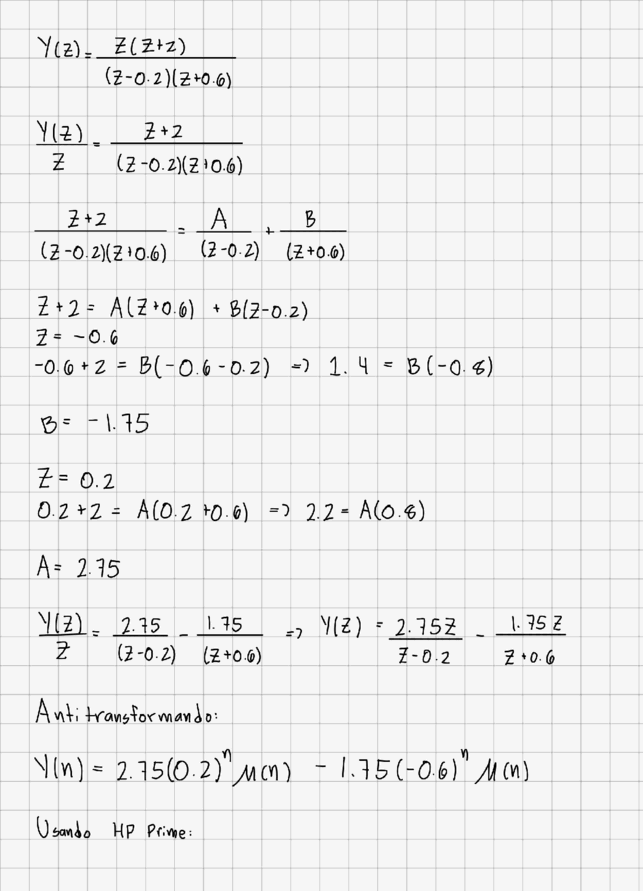 Y(z) = Z(Z+2) / (Z-0.2)(Z+0.6)
Y(Z)/Z = Z+2 / (Z-0.2)(Z+0.6)
Z+2 / (Z-0.2)(Z+0.6) = A / (Z-0.2) + B / (Z+0.6)
Z+2 = A(Z+0.6) + B(Z-0.2)
Z = -0.6
-0.6+2 = B(-0.6-0.2) => 1.4 = B(-0.8)
B = -1.75
Z = 0.2
0.2+2 = A(0.2+0.6) => 2.2 = A(0.8)
A = 2.75
Y(Z)/Z = 2.75 / (Z-0.2) - 1.75 / (Z+0.6) => Y(Z) = 2.75Z / Z-0.2 - 1.75Z / Z+0.6
Antitransformando:
Y(n) = 2.75(0.2)ⁿ μ(n) - 1.75(-0.6)ⁿ μ(n)
Usando HP Prime: